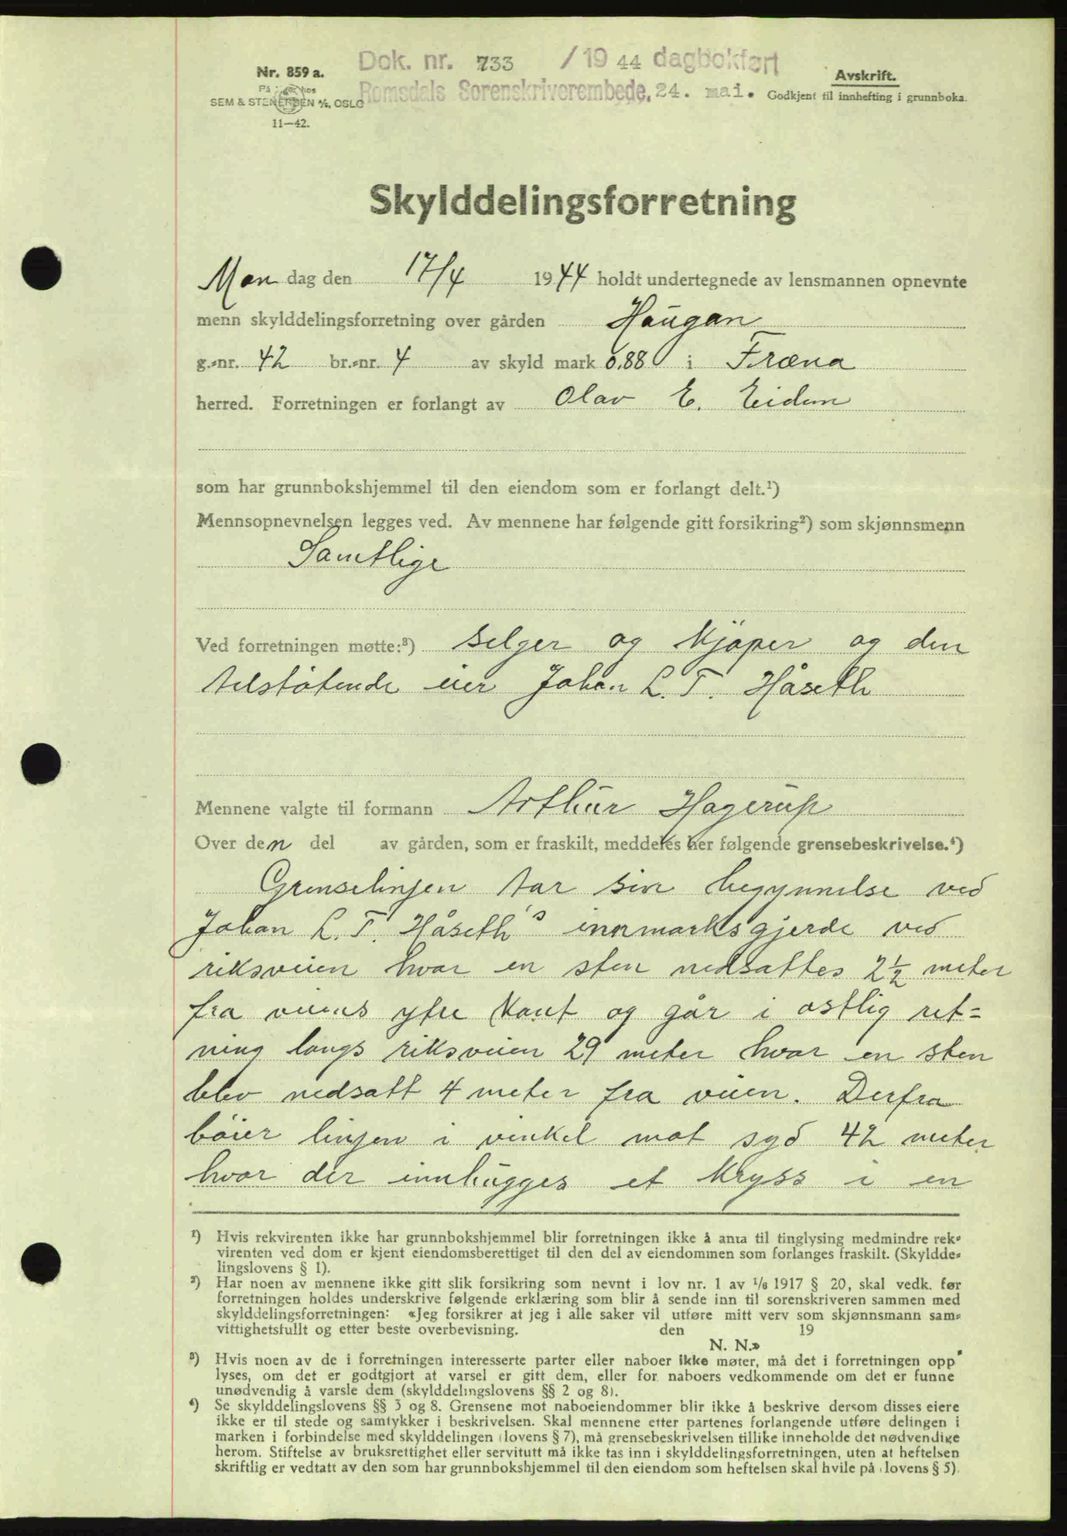 Dok. nr. 733 / 19 44 dagbokført
Nr. 859 a.
Avskrift.
SEM & STENERSEN A/S, OSLO
Romsdals Sorenskriverembede, 24. mai.
Godkjent til innhefting i grunnboka.
11—42.
Skylddelingsforretning
Man dag den 17/4 1944 holdt undertegnede av lensmannen opnevnte
menn skylddelingsforretning over gården Haugan
g.-nr. 42 br.-nr. 4 av skyld mark 0.88 i Fræna
herred. Forretningen er forlangt av Olav E. Eidem
som har grunnbokshjemmel til den eiendom som er forlangt delt.¹)
Mennsopnevnelsen legges ved. Av mennene har følgende gitt forsikring²) som skjønnsmenn
Samtlige
Ved forretningen møtte:³) selger og kjøper og den
tilstøtende eier Johan L. T. Håseth
Mennene valgte til formann Arthur Hagerup
Over den del av gården, som er fraskilt, meddeles her følgende grensebeskrivelse.⁴)
Grenselinjen tar sin begynnelse ved
Johan L. T. Håseth's innmarksgjerde ved
riksveien hvor en sten nedsattes 2½ meter
fra veiens ytre kant og går i østlig ret=
ning langs riksveien 29 meter hvor en sten
blev nedsatt 4 meter fra veien. Derfra
bøier linjen i vinkel mot syd 42 meter
hvor der innhugges et kryss i en
¹) Hvis rekvirenten ikke har grunnbokshjemmel blir forretningen ikke å anta til tinglysing medmindre rek-
virenten ved dom er kjent eiendomsberettiget til den del av eiendommen som forlanges fraskilt. (Skyldde-
lingslovens § 1).
²) Har noen av mennene ikke gitt slik forsikring som nevnt i lov nr. 1 av 1/6 1917 § 20, skal vedk. før
forretningen holdes underskrive følgende erklæring som blir å sende inn til sorenskriveren sammen med
skylddelingsforretningen: «Jeg forsikrer at jeg i alle saker vil utføre mitt verv som skjønnsmann sam-
vittighetsfullt og etter beste overbevisning. den 19
N. N.»
³) Hvis noen av de i forretningen interesserte parter eller naboer ikke møter, må det i forretningen opp
lyses, om det er godtgjort at varsel er gitt dem, eller for naboers vedkommende om det er funne
unødvendig å varsle dem (skylddelingslovens §§ 2 og 8).
⁴) Se skylddelingslovens §§ 3 og 8. Grensene mot naboeiendommer blir ikke å beskrive dersom disses eiere
ikke er til stede og samtykker i beskrivelsen. Skal mennene etter partenes forlangende utføre delingen i
marken i forbindelse med skylddelingen (lovens § 7), må grensebeskrivelsen tillike inneholde det nødvendige
herom. Stiftelse av bruksrettighet eller servitutt må ikke tas inn i skylddelingsforretningen, uten at heftelsen
skriftlig er vedtatt av den som har grunnbokshjemmel til den eiendom som heftelsen skal hvile på (lovens § 5).